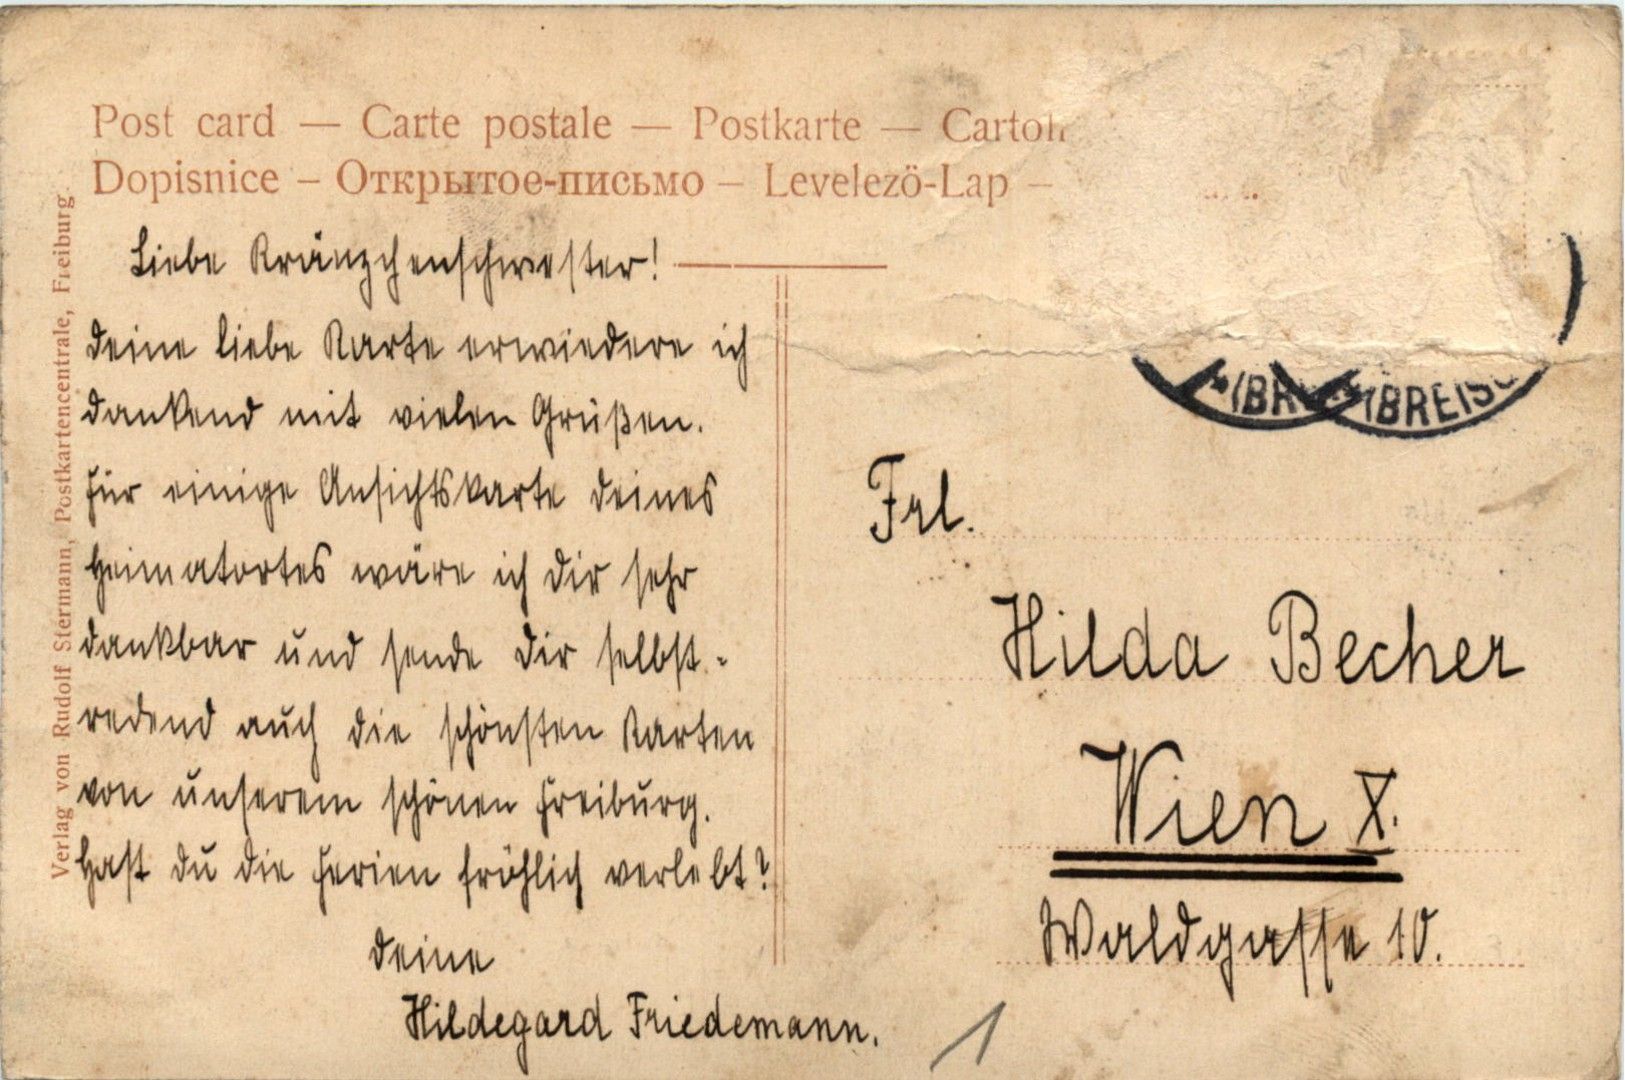 Post card — Carte postale — Postkarte —
Dopisnice – Открытое-письмо – Levelező-Lap –
Verlag von Rudolf Stermann, Postkartencentrale, Freiburg
Liebe Kränzchenschwester!
Deine liebe Karte erwiedere ich
dankend mit vielen Grüßen.
Für einige Ansichtskarte Deines
Heimatortes wäre ich Dir sehr
dankbar und sende Dir selbst-
redend auch die schönsten Karten
von unserem schönen Freiburg.
Hast Du die Ferien fröhlich verlebt?
Deine
Hildegard Friedemann.
Frl.
Hilda Becher
Wien X.
Waldgasse 10.
1